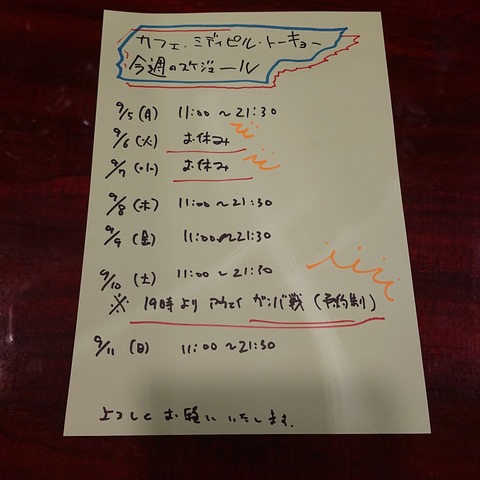 カフェ・ミディピル・トーキョー
今週のスケジュール
9/5(月) 11:00~21:30
9/6(火) お休み
9/7(水) お休み
9/8(木) 11:00~21:30
9/9(金) 11:00~21:30
9/10(土) 11:00~21:30
※19時よりアウェイガンバ戦(予約制)
9/11(日) 11:00~21:30
よろしくお願いいたします.